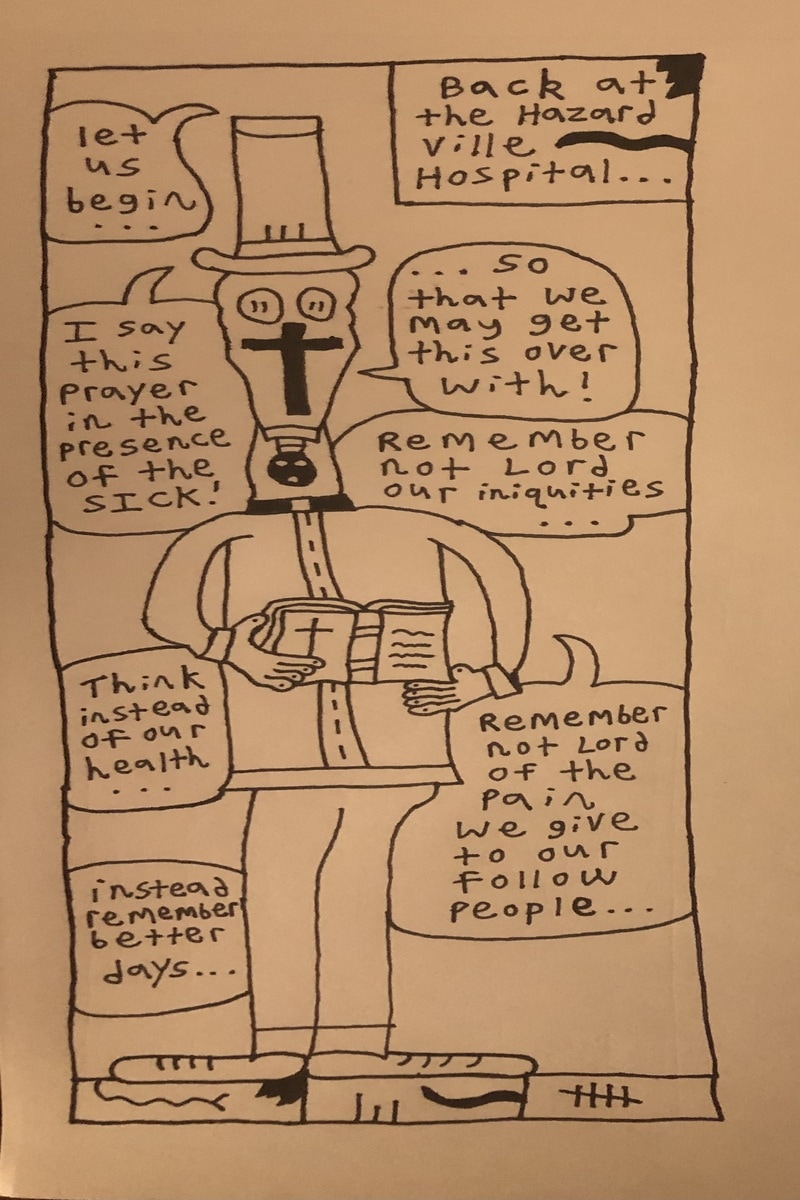 Back at
the Hazard
ville
Hospital...
let
us
begin
...
... so
that we
may get
this over
with!
I say
this
prayer
in the
presence
of the
SICK!
Remember
not Lord
our iniquities
...
Think
instead
of our
health
...
Remember
not Lord
of the
pain
we give
to our
follow
people...
instead
remember
better
days...